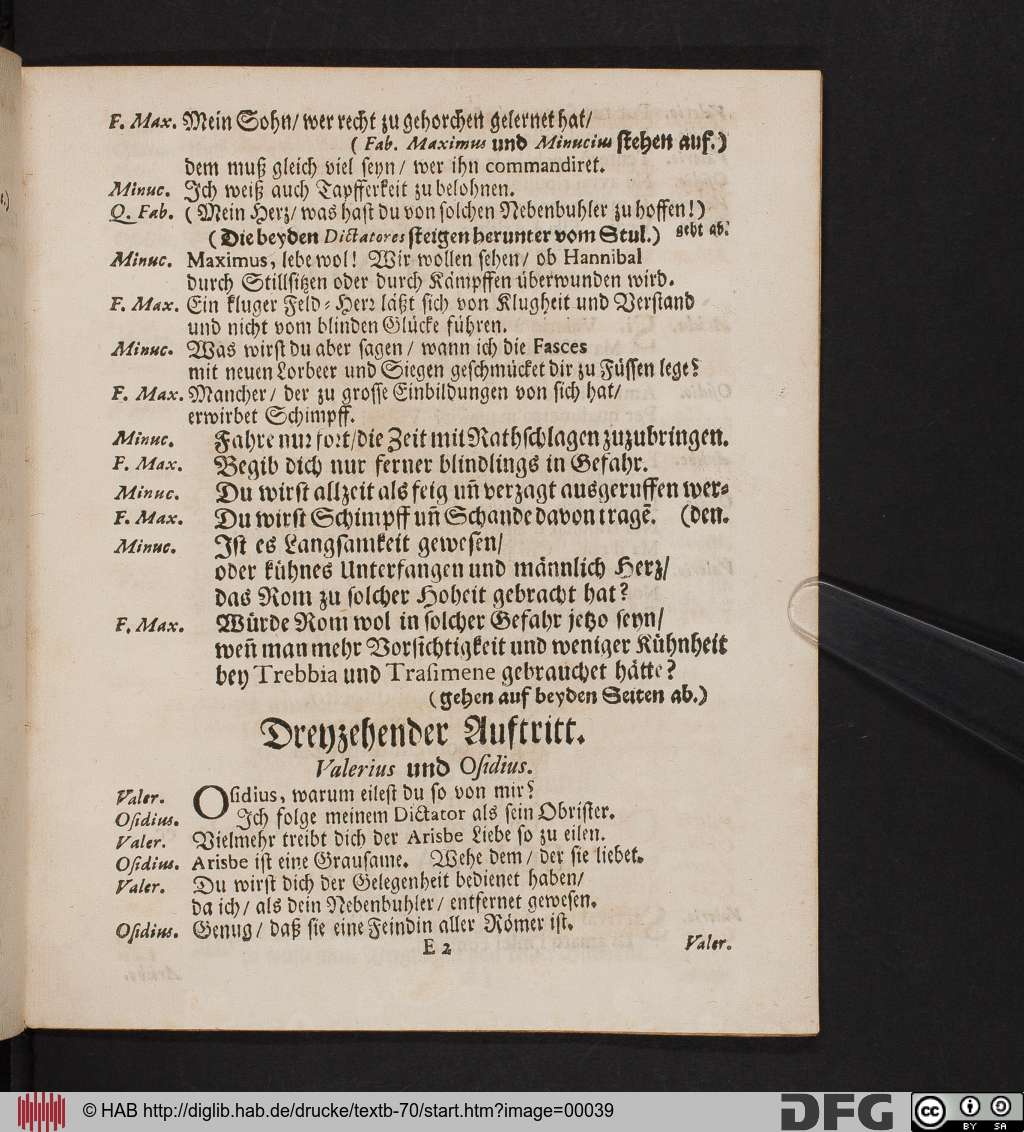 F. Max. Mein Sohn/ wer recht zu gehorchen gelernet hat/
( Fab. Maximus und Minucius stehen auf.)
dem muß gleich viel seyn/ wer ihn commandiret.
Minuc. Ich weiß auch Tapfferkeit zu belohnen.
Q. Fab. ( Mein Herz/ was hast du von solchen Nebenbuhler zu hoffen!)
(Die beyden Dictatores steigen herunter vom Stul.) geht ab.
Minuc. Maximus, lebe wol! Wir wollen sehen/ ob Hannibal
durch Stillsitzen oder durch Kämpffen überwunden wird.
F. Max. Ein kluger Feld-Herr läßt sich von Klugheit und Verstand
und nicht vom blinden Glücke führen.
Minuc. Was wirst du aber sagen/ wann ich die Fasces
mit neuen Lorbeer und Siegen geschmücket dir zu Füssen lege?
F. Max. Mancher/ der zu grosse Einbildungen von sich hat/
erwirbet Schimpff.
Minuc. Fahre nur fort/ die Zeit mit Rathschlagen zuzubringen.
F. Max. Begib dich nur ferner blindlings in Gefahr.
Minuc. Du wirst allzeit als feig uñ verzagt ausgeruffen wer-
F. Max. Du wirst Schimpff uñ Schande davon tragē. (den.
Minuc. Ist es Langsamkeit gewesen/
oder kühnes Unterfangen und männlich Herz/
das Rom zu solcher Hoheit gebracht hat?
F. Max. Würde Rom wol in solcher Gefahr jetzo seyn/
weñ man mehr Vorsichtigkeit und weniger Kühnheit
bey Trebbia und Trasimene gebrauchet hätte?
(gehen auf beyden Seiten ab.)
Dreyzehender Auftritt.
Valerius und Osidius.
Valer. Osidius, warum eilest du so von mir?
Osidius. Ich folge meinem Dictator als sein Obrister.
Valer. Vielmehr treibt dich der Arisbe Liebe so zu eilen.
Osidius. Arisbe ist eine Grausame. Wehe dem/ der sie liebet.
Valer. Du wirst dich der Gelegenheit bedienet haben/
da ich/ als dein Nebenbuhler/ entfernet gewesen.
Osidius. Genug/ daß sie eine Feindin aller Römer ist.
E 2 Valer.
© HAB http://diglib.hab.de/drucke/textb-70/start.htm?image=00039
DFG
cc BY SA